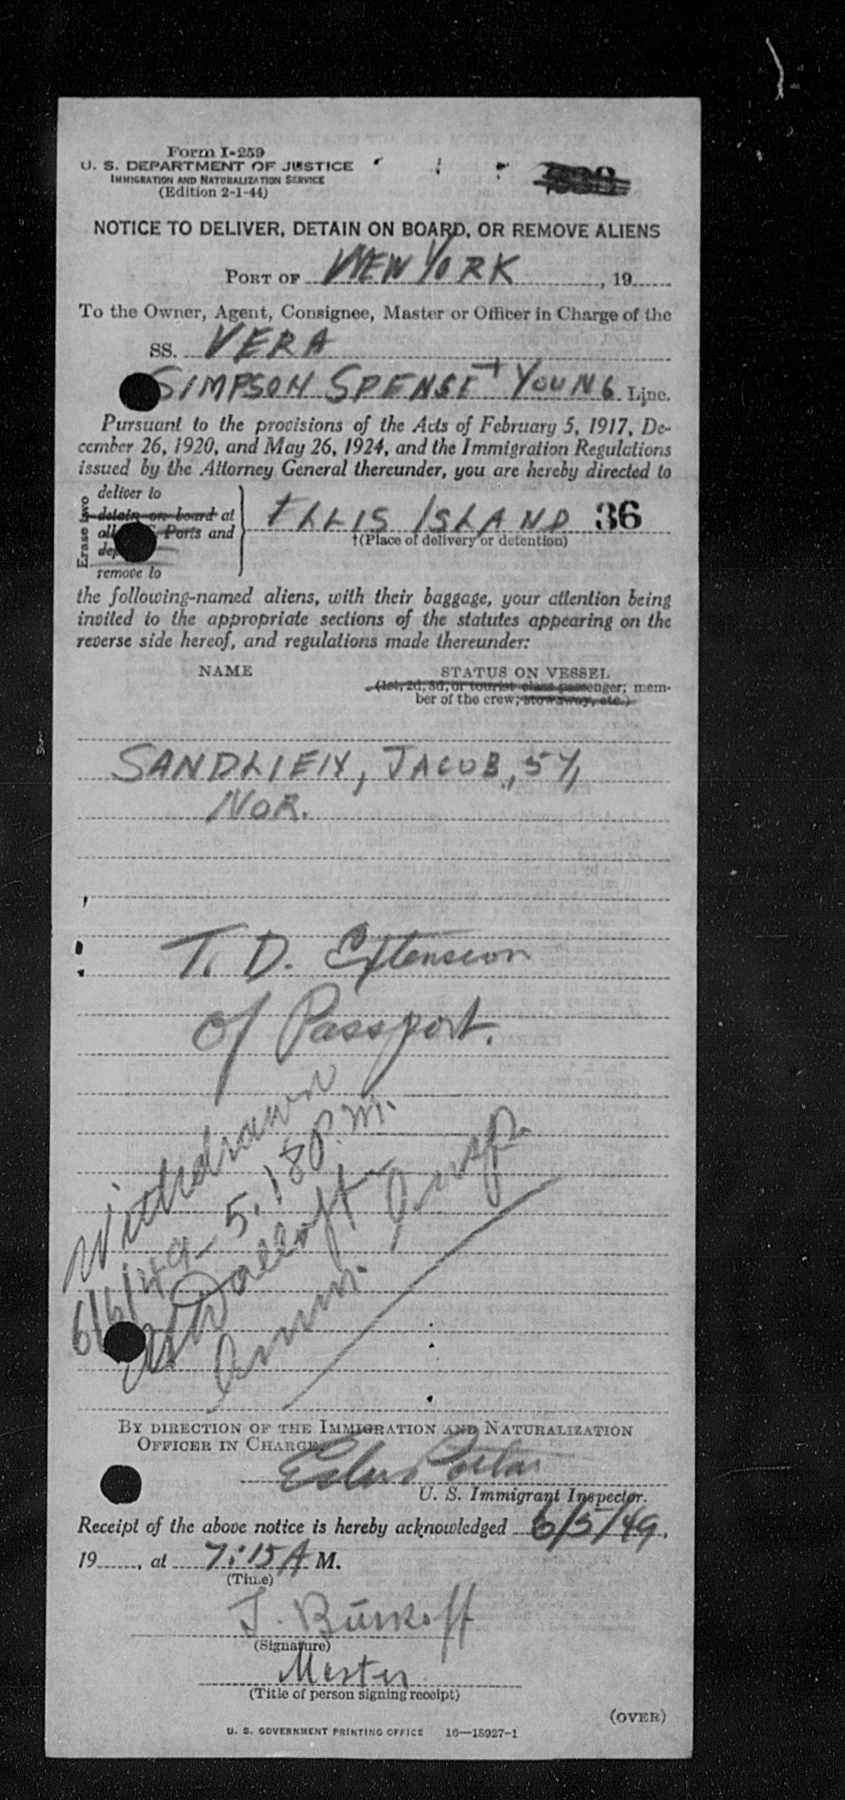 Form I-259
U. S. DEPARTMENT OF JUSTICE
IMMIGRATION AND NATURALIZATION SERVICE
(Edition 2-1-44)
NOTICE TO DELIVER, DETAIN ON BOARD, OR REMOVE ALIENS
PORT OF NEW YORK, 19
To the Owner, Agent, Consignee, Master or Officer in Charge of the
SS. VERA
SIMPSON SPENSE + YOUNG Line.
Pursuant to the provisions of the Acts of February 5, 1917, De-
cember 26, 1920, and May 26, 1924, and the Immigration Regulations
issued by the Attorney General thereunder, you are hereby directed to
Erase two
deliver to
detain on board at
all Ports and
remove to
ELLIS ISLAND 36
†(Place of delivery or detention)
the following-named aliens, with their baggage, your attention being
invited to the appropriate sections of the statutes appearing on the
reverse side hereof, and regulations made thereunder:
NAME STATUS ON VESSEL
(1st, 2d, 3d, or tourist class passenger; mem-
ber of the crew; stowaway, etc.)
SANDLIEN, JACOB, 57,
NOR.
T. D. Extension
of Passport.
Withdrawn
6/6/49 - 5.18 P.M.
Imm. Insp.
BY DIRECTION OF THE IMMIGRATION AND NATURALIZATION
OFFICER IN CHARGE,
U. S. Immigrant Inspector.
Receipt of the above notice is hereby acknowledged 6/5/49,
19, at 7:15 A M.
(Time)
J.
(Signature)
Master
(Title of person signing receipt)
(OVER)
U. S. GOVERNMENT PRINTING OFFICE 16—18927-1